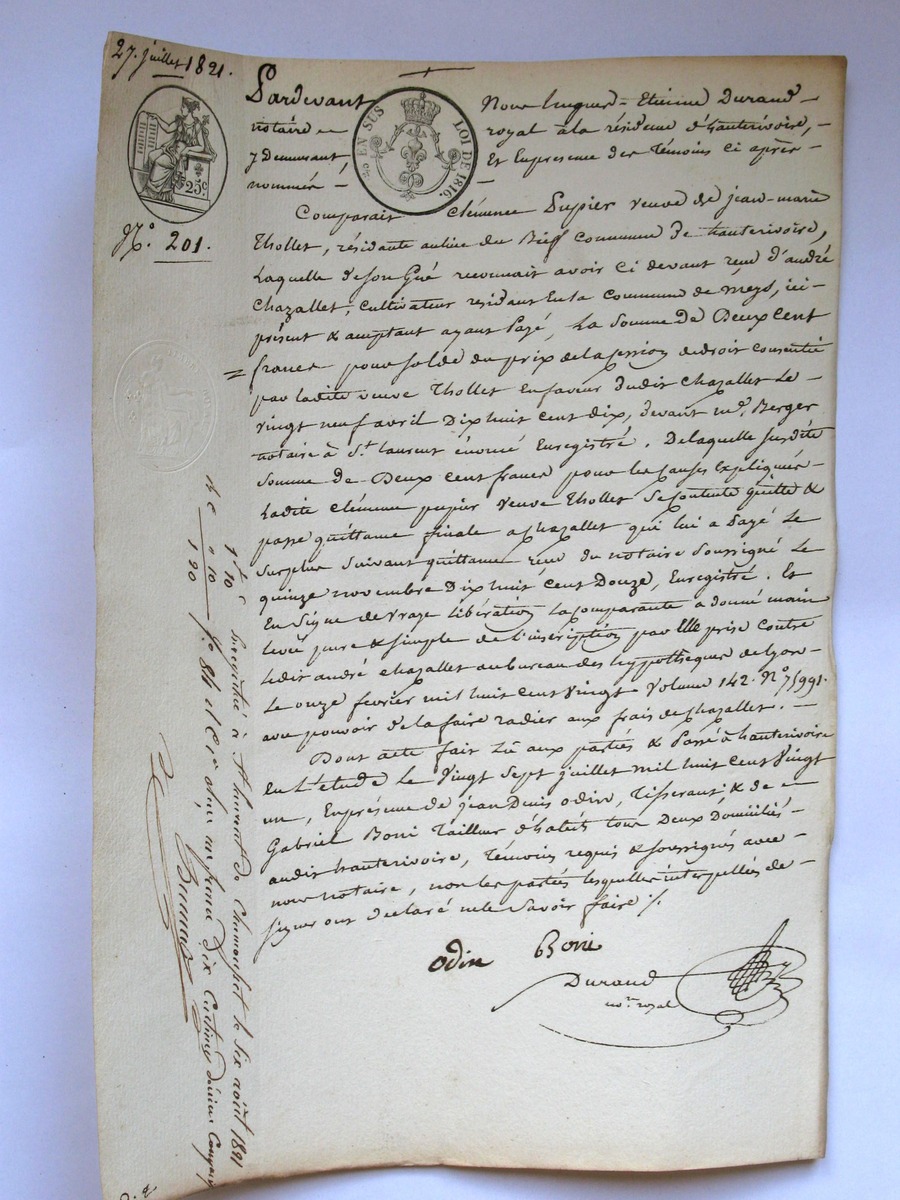 27. juillet 1821.
Pardevant Nous hugues-Etienne Durand
notaire royal à la résidence d'hauterivoire,
y demeurant, Et En presence des Témoins ci après
nommés
EN SUS LOI DE 1816.
25c
N.º 201.
Comparait Clémence Pupier veuve de jean-marie
Thollet, résidante au lieu du Bieff commune de hauterivoire,
Laquelle de son Gré reconnait avoir ci devant reçu d'andré
Chazallet, cultivateur residant En la commune de meys, ici
présent & acceptant ayant Payé, La Somme de Deux cent
francs pour solde du prix de la cession de droit consentie
par ladite veuve Thollet En faveur dudit Chazallet Le
vingt neuf avril Dix huit cent dix, devant me. Berger
notaire à St. laurent énoncé Enregistré. De laquelle susdite
Somme de Deux cent francs pour les causes Expliquées
Ladite Clémence pupier veuve Thollet se contente quitte &
passe quittance finale à Chazallet qui lui a Payé Le
surplus suivant quittance reçue du notaire soussigné Le
quinze novembre Dix huit cent Douze, Enregistré. Et
En Signe de vraye libération La comparante a donné main
levée pure & simple de l'inscription par Elle prise contre
ledit andré chazallet au bureau des hypothèques de Lyon
Le onze février mil huit cent vingt volume 142. Nº 75991.
avec pouvoir de la faire radier aux frais de chazallet.
Dont acte fait Lu aux parties & Passé à hauterivoire
En L'étude Le vingt sept juillet mil huit cent vingt
un, En présence de jean Denis odin, Tisserant & de
Gabriel Boni Tailleur d'habits tous Deux Domiciliés
audit hauterivoire, Témoins requis & soussignés avec
nous notaire, non les parties lesquelles interpellées de
signer ont declaré ne le Savoir faire
odin Boni
Durand
no.re royal
1 f 10 c
" 10
1 20
Enregistré à St laurent de Chamousset le six août 1821
fo 84 reçu un franc Dix Centimes décime Compris